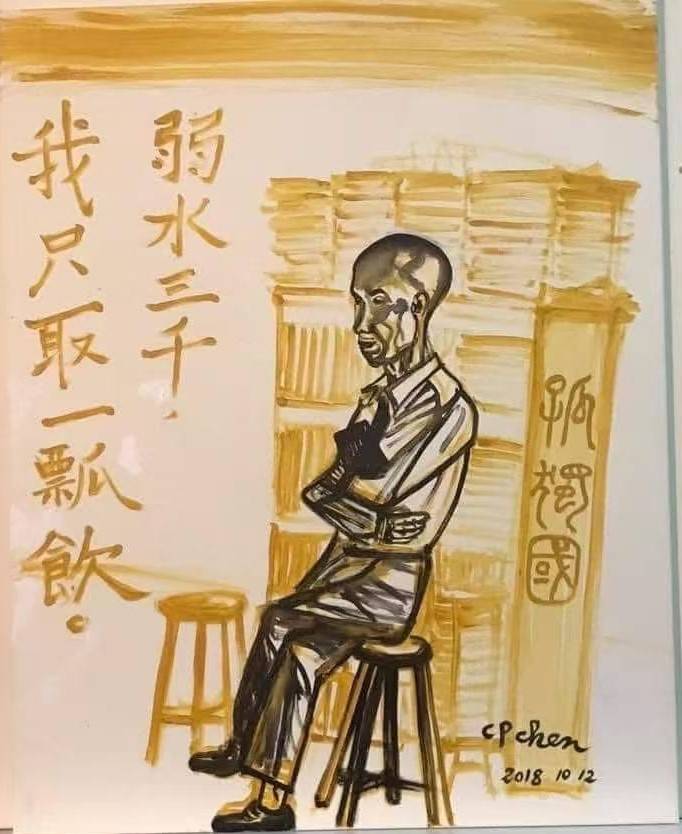 弱水三千，
我只取一瓢飲。
孤獨國
CP chen
2018 10 12